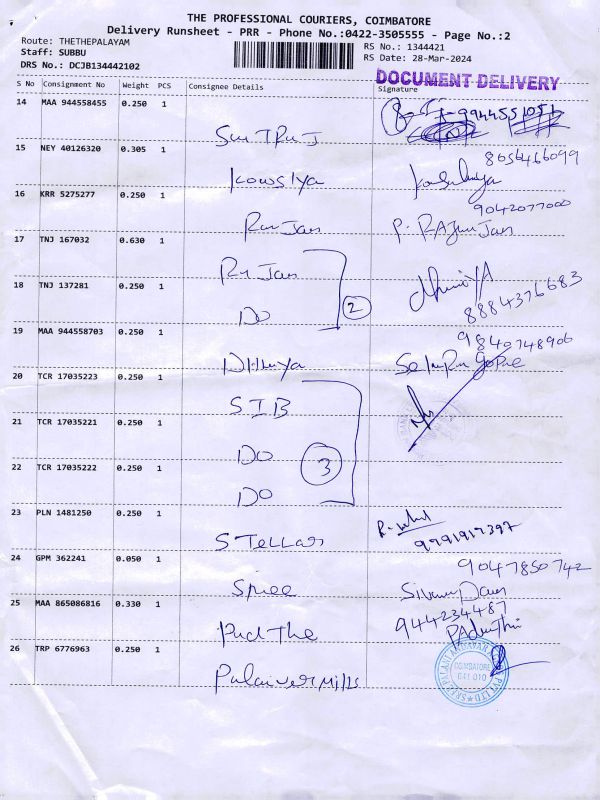 THE PROFESSIONAL COURIERS, COIMBATORE
Delivery Runsheet - PRR - Phone No.:0422-3505555 - Page No.:2
Route: THETHEPALAYAM RS No.: 1344421
Staff: SUBBU RS Date: 28-Mar-2024
DRS No.: DCJB134442102
DOCUMENT DELIVERY
S No Consignment No Weight PCS Consignee Details Signature
14 MAA 944558455 0.250 1
15 NEY 40126320 0.305 1 8056466099
Kowsiya
16 KRR 5275277 0.250 1 9042077000
Ranjan
17 TNJ 167032 0.630 1
Ranjan
18 TNJ 137281 0.250 1 8884376683
Do 2
19 MAA 944558703 0.250 1 9840748906
Dhivya
20 TCR 17035223 0.250 1
SIB
21 TCR 17035221 0.250 1
Do 3
22 TCR 17035222 0.250 1
Do
23 PLN 1481250 0.250 1
Stellar
24 GPM 362241 0.050 1 9047850742
Spree
25 MAA 865086816 0.330 1 944234487
26 TRP 6776963 0.250 1
COIMBATORE
641 010